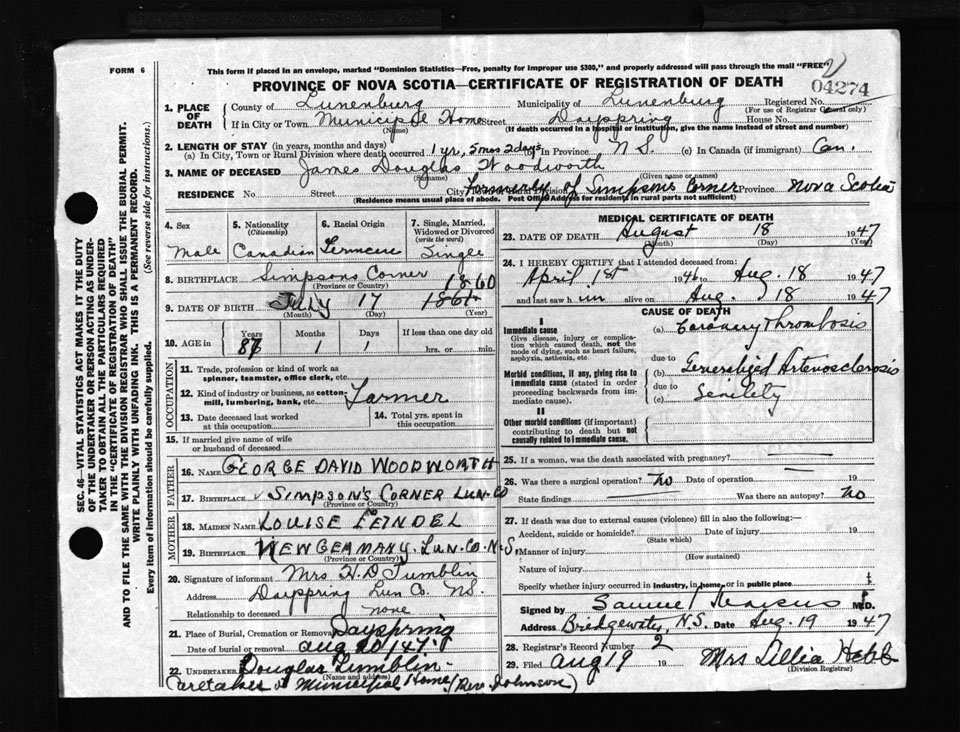 FORM 6
This form if placed in an envelope, marked "Dominion Statistics—Free, penalty for improper use $300," and properly addressed will pass through the mail "FREE"
PROVINCE OF NOVA SCOTIA—CERTIFICATE OF REGISTRATION OF DEATH
04274
1. PLACE OF DEATH County of Lunenburg Municipality of Lunenburg Registered No.
(For use of Registrar General only)
If in City or Town Municipal Home Street Dayspring House No.
(Name) (If death occurred in a hospital or institution, give the name instead of street and number)
2. LENGTH OF STAY (in years, months and days)
(a) In City, Town or Rural Division where death occurred 1 yr, 5 mos 2 days (b) In Province N S. (c) In Canada (if immigrant) Can.
3. NAME OF DECEASED James Douglas Woodworth
(Surname) (Given name or names)
RESIDENCE No. Street City Formerly of Simpsons Corner Province Nova Scotia
(Residence means usual place of abode. Post Office Address for residents in rural parts not sufficient)
4. Sex Male
5. Nationality (Citizenship) Canadian
6. Racial Origin
7. Single, Married, Widowed or Divorced (write the word) Single
8. BIRTHPLACE Simpsons Corner
(Province or Country) 1860
9. DATE OF BIRTH July 17 1861
(Month) (Day) (Year)
10. AGE in Years Months Days If less than one day old
1 1 hrs. or min.
OCCUPATION
11. Trade, profession or kind of work as spinner, teamster, office clerk, etc.
12. Kind of industry or business, as cotton-mill, lumbering, bank, etc. Farmer
13. Date deceased last worked at this occupation
14. Total yrs. spent in this occupation
15. If married give name of wife or husband of deceased
FATHER
16. Name GEORGE DAVID WOODWORTH
17. Birthplace SIMPSON'S CORNER LUN. CO
(Province or Country)
MOTHER
18. Maiden Name LOUISE FEINDEL
19. Birthplace NEW GERMANY. LUN. CO. N. S.
(Province or Country)
20. Signature of informant Mrs H. D. Tumblin
Address Dayspring Lun Co. NS.
Relationship to deceased none
21. Place of Burial, Cremation or Removal Dayspring
Date of burial or removal Aug 20/47
22. Undertaker Douglas Tumblin
(Name and address)
Caretaker of Municipal Home (Rev. Johnson)
MEDICAL CERTIFICATE OF DEATH
23. DATE OF DEATH August 18 1947
(Month) (Day) (Year)
24. I HEREBY CERTIFY that I attended deceased from:
April 1st 1946 to Aug. 18 1947
and last saw h im alive on Aug. 18 1947
CAUSE OF DEATH
I
Immediate cause
Give disease, injury or complication which caused death, not the mode of dying, such as heart failure, asphyxia, asthenia, etc
(a) Coronary Thrombosis
due to
Morbid conditions, if any, giving rise to immediate cause (stated in order proceeding backwards from immediate cause).
(b) Generalized Arteriosclerosis
due to
(c) Senility
II
Other morbid conditions (if important) contributing to death but not causally related to immediate cause.
25. If a woman, was the death associated with pregnancy?
26. Was there a surgical operation? No Date of operation 19
State findings Was there an autopsy? No
27. If death was due to external causes (violence) fill in also the following:—
Accident, suicide or homicide? Date of injury 19
(State which)
Manner of injury
(How sustained)
Nature of injury
Specify whether injury occurred in industry, in home, or in public place
Signed by Samuel Marcus M.D.
Address Bridgewater, N.S. Date Aug. 19 1947
28. Registrar's Record Number 2
29. Filed Aug 19 19 Mrs Lillia Hebb
(Division Registrar)
SEC. 46—VITAL STATISTICS ACT MAKES IT THE DUTY
OF THE UNDERTAKER OR PERSON ACTING AS UNDER-
TAKER TO OBTAIN ALL THE PARTICULARS REQUIRED
IN THE "CERTIFICATE OF REGISTRATION OF DEATH"
AND TO FILE THE SAME WITH THE DIVISION REGISTRAR WHO SHALL ISSUE THE BURIAL PERMIT.
WRITE PLAINLY WITH UNFADING INK. THIS IS A PERMANENT RECORD.
Every item of information should be carefully supplied. (See reverse side for instructions.)